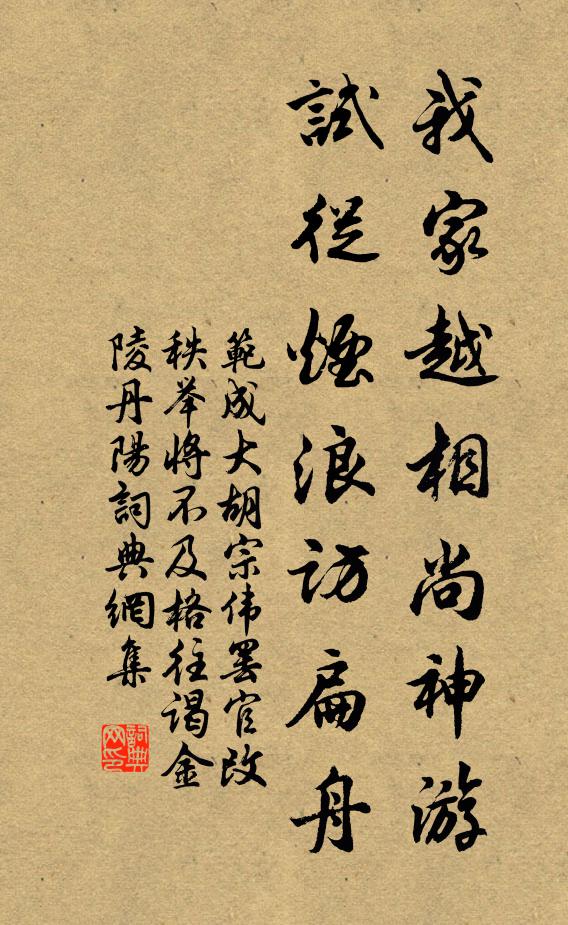 我家越相尚神游
試從煙浪訪扁舟
範成大胡宗伟罢官改
秩举將不及格往谒金
陵丹陽詞典網集
詞典
网印